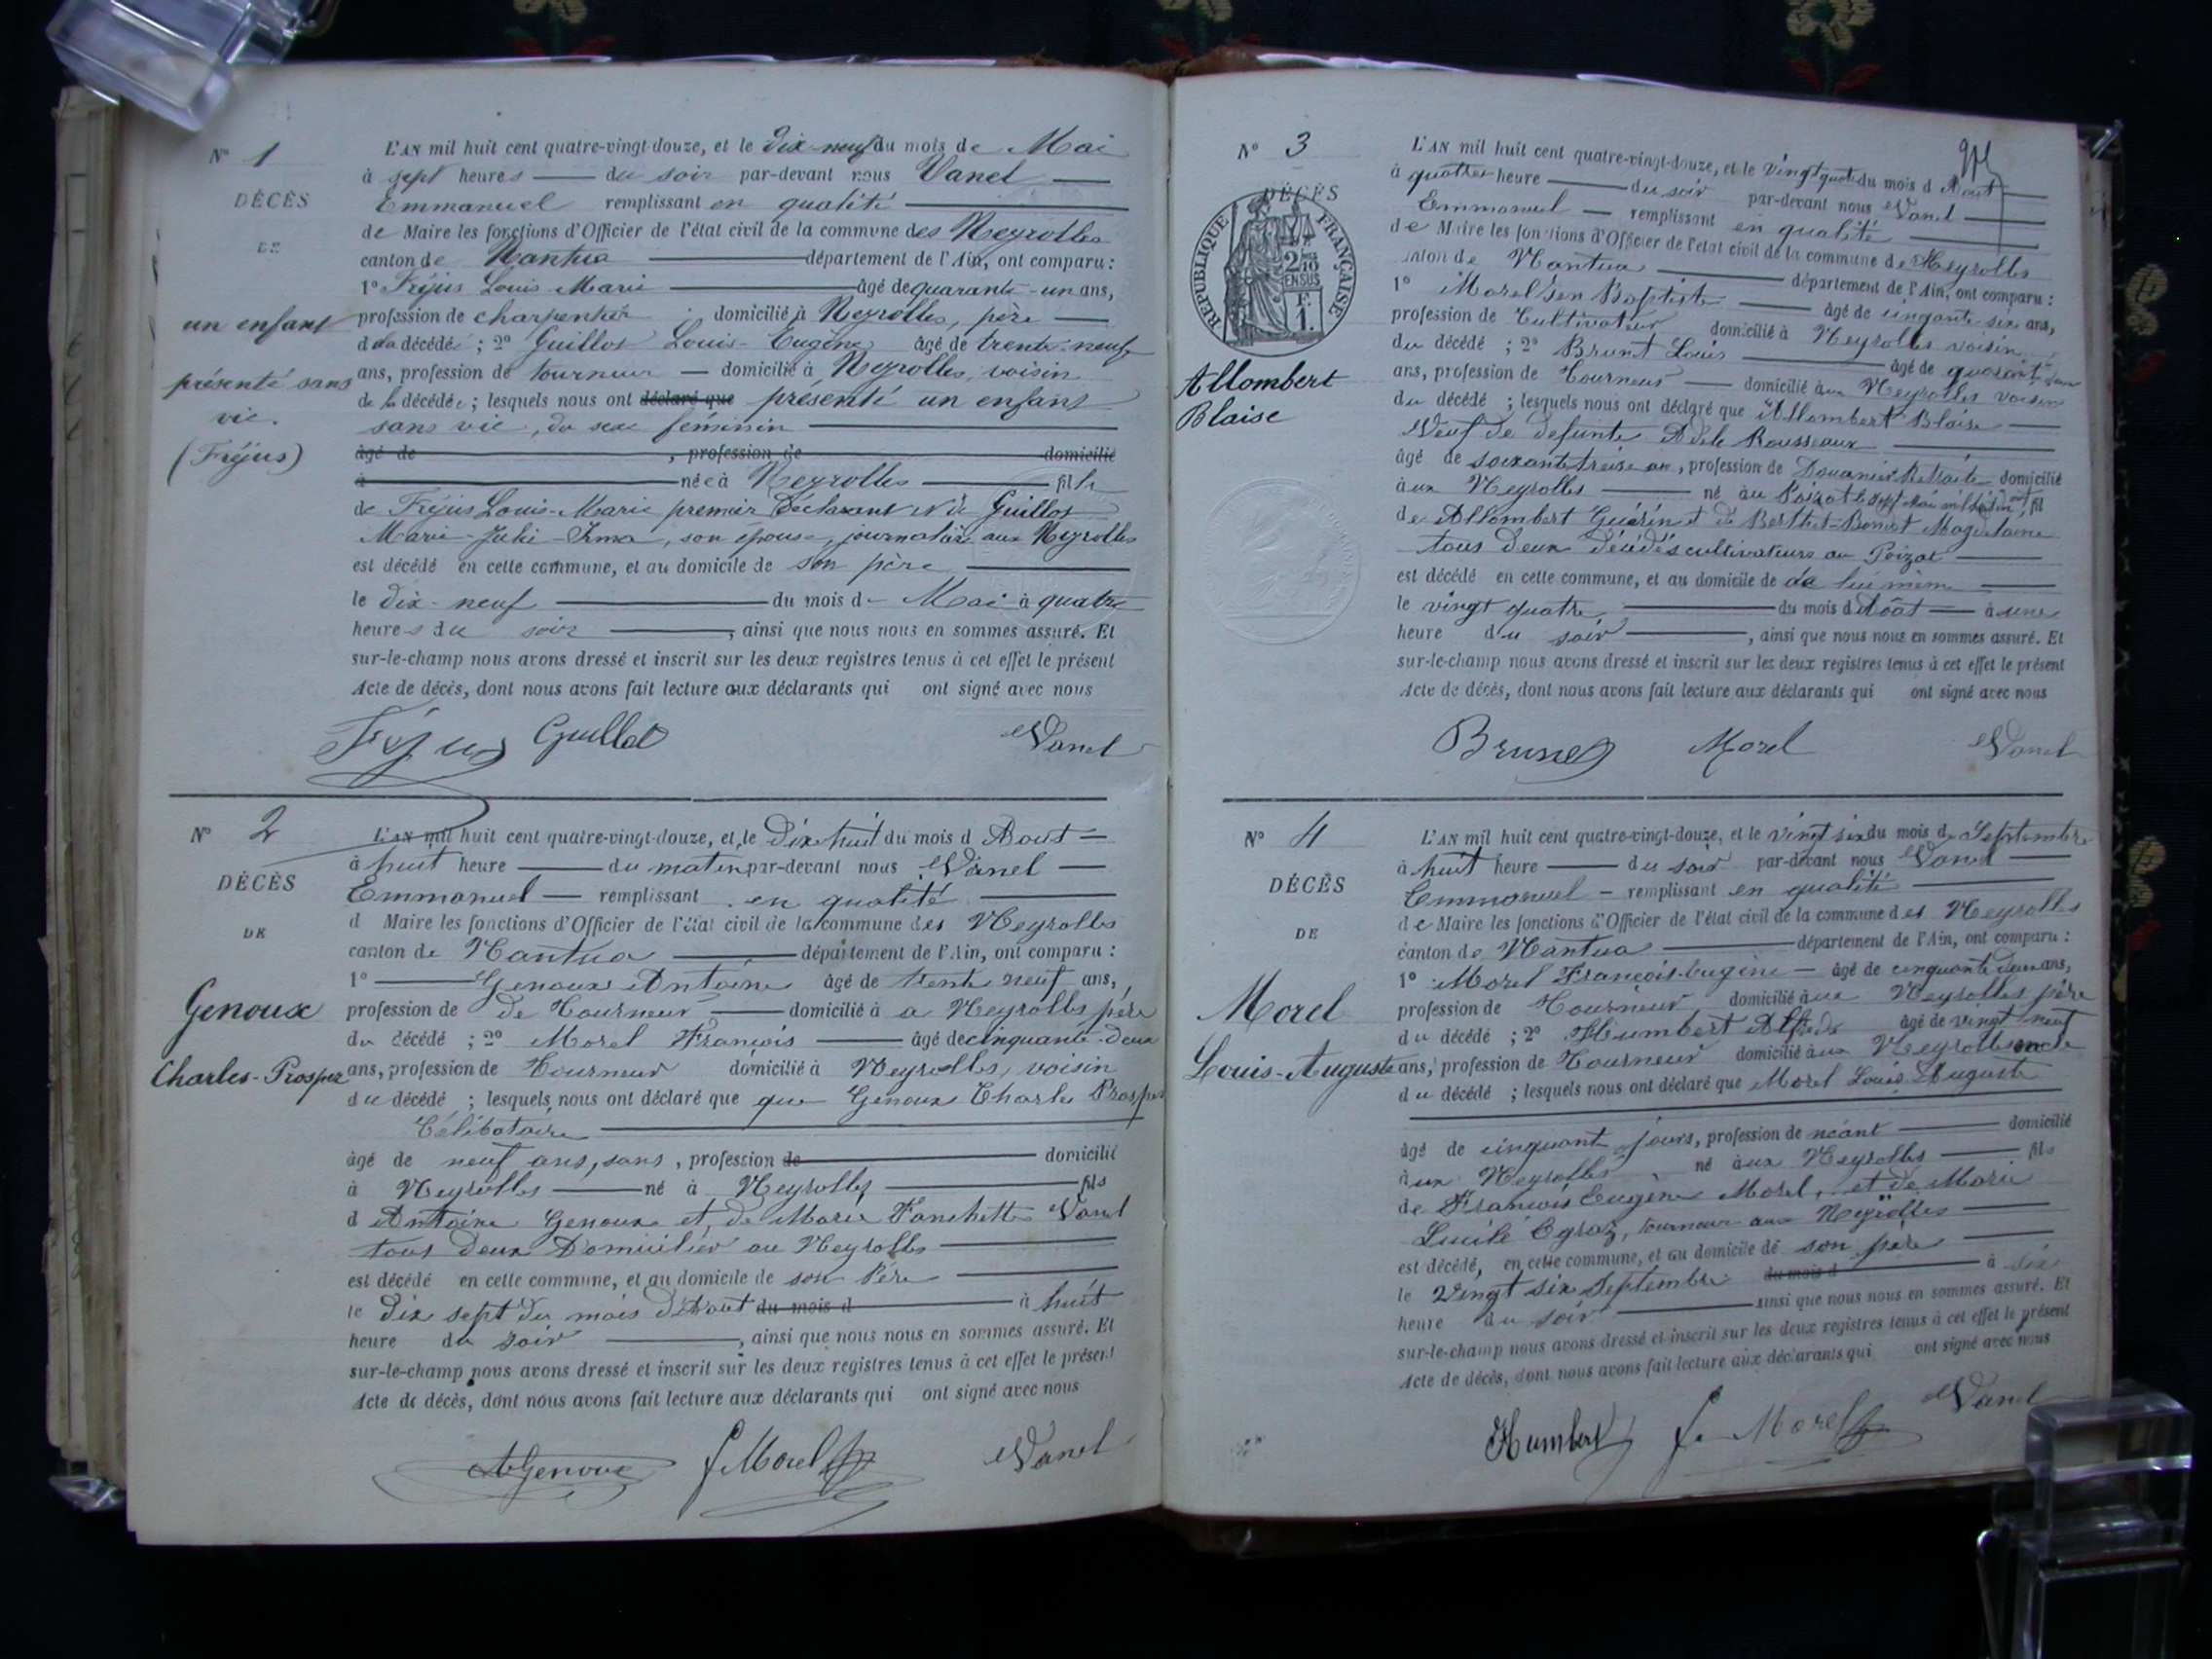 N° 1
DÉCÈS
DE
un enfant
présenté sans
vie.
(Fréjus)
L'AN mil huit cent quatre-vingt-douze, et le Dix-neuf du mois de Mai
à sept heures du soir par-devant nous Vanel
Emmanuel remplissant en qualité
de Maire les fonctions d'Officier de l'état civil de la commune des Neyrolles
canton de Nantua département de l'Ain, ont comparu :
1° Fréjus Louis Marie âgé de quarante-un ans,
profession de charpentier domicilié à Neyrolles, père
de la décédée ; 2° Guillot Louis-Eugène âgé de trente-neuf
ans, profession de tourneur domicilié à Neyrolles, voisin
de la décédée ; lesquels nous ont déclaré que présenté un enfant
sans vie, du sexe féminin
âgé de , profession de domicilié
à née à Neyrolles fille
de Fréjus Louis-Marie premier Déclarant et de Guillot
Marie-Julie-Irma, son épouse, journalière aux Neyrolles
est décédé en cette commune, et au domicile de son père
le Dix-neuf du mois de Mai à quatre
heures du soir , ainsi que nous nous en sommes assuré. Et
sur-le-champ nous avons dressé et inscrit sur les deux registres tenus à cet effet le présent
Acte de décès, dont nous avons fait lecture aux déclarants qui ont signé avec nous
Fréjus Guillot Vanel
N° 2
DÉCÈS
DE
Genoux
Charles-Prosper
L'AN mil huit cent quatre-vingt-douze, et le Dix huit du mois d Aout
à huit heure du matin par-devant nous Vanel
Emmanuel remplissant en qualité
d Maire les fonctions d'Officier de l'état civil de la commune des Neyrolles
canton de Nantua département de l'Ain, ont comparu :
1° Genoux Antoine âgé de trente neuf ans,
profession de de Tourneur domicilié à a Neyrolles père
du décédé ; 2° Morel François âgé de cinquante-deux
ans, profession de Tourneur domicilié à Neyrolles, voisin
du décédé ; lesquels nous ont déclaré que que Genoux Charles Prosper
Célibataire
âgé de neuf ans, sans , profession de domicilié
à Neyrolles né à Neyrolles fils
d Antoine Genoux et, de Marie Fanchette Vanel
tous deux Domiciliés au Neyrolles
est décédé en cette commune, et au domicile de son Père
le Dix sept du mois d'Aout du mois d à huit
heure du soir , ainsi que nous nous en sommes assuré. Et
sur-le-champ nous avons dressé et inscrit sur les deux registres tenus à cet effet le présent
Acte de décès, dont nous avons fait lecture aux déclarants qui ont signé avec nous
AGenoux f Morel Vanel
N° 3
DÉCÈS
RÉPUBLIQUE FRANÇAISE
2/10
EN SUS
F.
1.
Allombert
Blaise
L'AN mil huit cent quatre-vingt-douze, et le Vingt quatre du mois d Aout
à quatres heure du soir par-devant nous Vanel
Emmanuel remplissant en qualité
de Maire les fonctions d'Officier de l'état civil de la commune de Neyrolles
canton de Nantua département de l'Ain, ont comparu :
1° Morel Baptiste âgé de cinqante-six ans,
profession de Cultivateur domicilié à Neyrolles voisin
du décédé ; 2° Brunet Louis âgé de quarante
ans, profession de Tourneur domicilié aux Neyrolles voisin
du décédé ; lesquels nous ont déclaré que Allombert Blaise
Veuf de defunte Adèle Rousseaux
âgé de soixante treise an, profession de Douanier Retraite domicilié
à aux Neyrolles né au Poizat le sept mai fil
de Allombert Guérin et de Berthet-Bonet Magdelaine
tous deux décédés cultivateurs au Poizat
est décédé en cette commune, et au domicile de de lui même
le vingt quatre du mois d Aôat à une
heure du soir , ainsi que nous nous en sommes assuré. Et
sur-le-champ nous avons dressé et inscrit sur les deux registres tenus à cet effet le présent
Acte de décès, dont nous avons fait lecture aux déclarants qui ont signé avec nous
Brunet Morel Vanel
N° 4
DÉCÈS
DE
Morel
Louis-Auguste
L'AN mil huit cent quatre-vingt-douze, et le vingt six du mois de Septembre
à huit heure du soir par-devant nous Vanel
Emmanuel remplissant en qualité
de Maire les fonctions d'Officier de l'état civil de la commune des Neyrolles
canton de Nantua département de l'Ain, ont comparu :
1° Morel François-Eugène âgé de cinquante deux ans,
profession de Tourneur domicilié aux Neyrolles père
du décédé ; 2° Humbert Alfred âgé de vingt neuf
ans, profession de Tourneur domicilié aux Neyrolles oncle
du décédé ; lesquels nous ont déclaré que Morel Louis Auguste
âgé de cinquant jours, profession de néant domicilié
aux Neyrolles né aux Neyrolles fils
de François Eugène Morel, et de Marie
Lucile Egraz, tourneur aux Neyrolles
est décédé, en cette commune, et au domicile de son père
le Vingt six Septembre du mois d à six
heure du soir ainsi que nous nous en sommes assuré. Et
sur-le-champ nous avons dressé et inscrit sur les deux registres tenus à cet effet le présent
Acte de décès, dont nous avons fait lecture aux déclarants qui ont signé avec nous
Humbert f. Morel Vanel